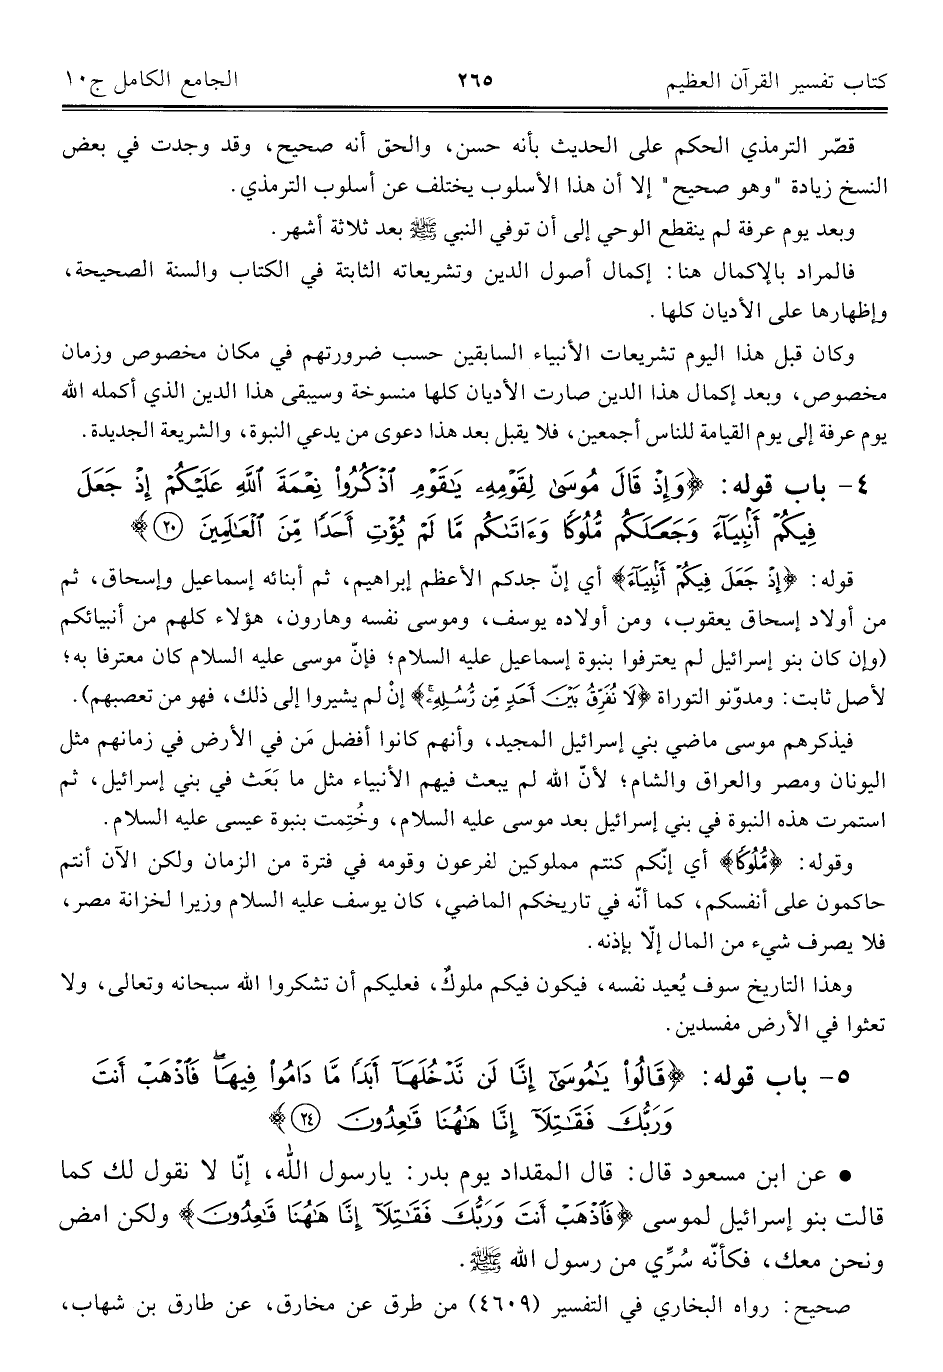 كتاب تفسير القرآن العظيم ٢٦٥ الجامع الكامل ج١٠
قصّر الترمذي الحكم على الحديث بأنه حسن، والحق أنه صحيح، وقد وجدت في بعض
النسخ زيادة "وهو صحيح" إلا أن هذا الأسلوب يختلف عن أسلوب الترمذي.
وبعد يوم عرفة لم ينقطع الوحي إلى أن توفي النبي ﷺ بعد ثلاثة أشهر.
فالمراد بالإكمال هنا: إكمال أصول الدين وتشريعاته الثابتة في الكتاب والسنة الصحيحة،
وإظهارها على الأديان كلها.
وكان قبل هذا اليوم تشريعات الأنبياء السابقين حسب ضرورتهم في مكان مخصوص وزمان
مخصوص، وبعد إكمال هذا الدين صارت الأديان كلها منسوخة وسيبقى هذا الدين الذي أكمله الله
يوم عرفة إلى يوم القيامة للناس أجمعين، فلا يقبل بعد هذا دعوى من يدعي النبوة، والشريعة الجديدة.
٤- باب قوله: ﴿وَإِذْ قَالَ مُوسَىٰ لِقَوْمِهِۦ يَٰقَوْمِ ٱذْكُرُوا۟ نِعْمَةَ ٱللَّهِ عَلَيْكُمْ إِذْ جَعَلَ
فِيكُمْ أَنۢبِيَآءَ وَجَعَلَكُم مُّلُوكًا وَءَاتَىٰكُم مَّا لَمْ يُؤْتِ أَحَدًا مِّنَ ٱلْعَٰلَمِينَ ۝٢٠﴾
قوله: ﴿إِذْ جَعَلَ فِيكُمْ أَنۢبِيَآءَ﴾ أي إنّ جدكم الأعظم إبراهيم، ثم أبنائه إسماعيل وإسحاق، ثم
من أولاد إسحاق يعقوب، ومن أولاده يوسف، وموسى نفسه وهارون، هؤلاء كلهم من أنبيائكم
(وإن كان بنو إسرائيل لم يعترفوا بنبوة إسماعيل عليه السلام؛ فإنّ موسى عليه السلام كان معترفا به؛
لأصل ثابت: ومدوّنو التوراة ﴿لَا نُفَرِّقُ بَيْنَ أَحَدٍ مِّن رُّسُلِهِۦ﴾ إنْ لم يشيروا إلى ذلك، فهو من تعصبهم).
فيذكرهم موسى ماضي بني إسرائيل المجيد، وأنهم كانوا أفضل مَن في الأرض في زمانهم مثل
اليونان ومصر والعراق والشام؛ لأنّ الله لم يبعث فيهم الأنبياء مثل ما بَعَث في بني إسرائيل، ثم
استمرت هذه النبوة في بني إسرائيل بعد موسى عليه السلام، وخُتِمت بنبوة عيسى عليه السلام.
وقوله: ﴿مُّلُوكًا﴾ أي إنّكم كنتم مملوكين لفرعون وقومه في فترة من الزمان ولكن الآن أنتم
حاكمون على أنفسكم، كما أنّه في تاريخكم الماضي، كان يوسف عليه السلام وزيرا لخزانة مصر،
فلا يصرف شيء من المال إلّا بإذنه.
وهذا التاريخ سوف يُعيد نفسه، فيكون فيكم ملوكٌ، فعليكم أن تشكروا الله سبحانه وتعالى، ولا
تعثوا في الأرض مفسدين.
٥- باب قوله: ﴿قَالُوا۟ يَٰمُوسَىٰٓ إِنَّا لَن نَّدْخُلَهَآ أَبَدًا مَّا دَامُوا۟ فِيهَا ۖ فَٱذْهَبْ أَنتَ
وَرَبُّكَ فَقَٰتِلَآ إِنَّا هَٰهُنَا قَٰعِدُونَ ۝٢٤﴾
• عن ابن مسعود قال: قال المقداد يوم بدر: يارسول الله، إنّا لا نقول لك كما
قالت بنو إسرائيل لموسى ﴿فَٱذْهَبْ أَنتَ وَرَبُّكَ فَقَٰتِلَآ إِنَّا هَٰهُنَا قَٰعِدُونَ﴾ ولكن امض
ونحن معك، فكأنّه سُرِّي من رسول الله ﷺ.
صحيح: رواه البخاري في التفسير (٤٦٠٩) من طرق عن مخارق، عن طارق بن شهاب،